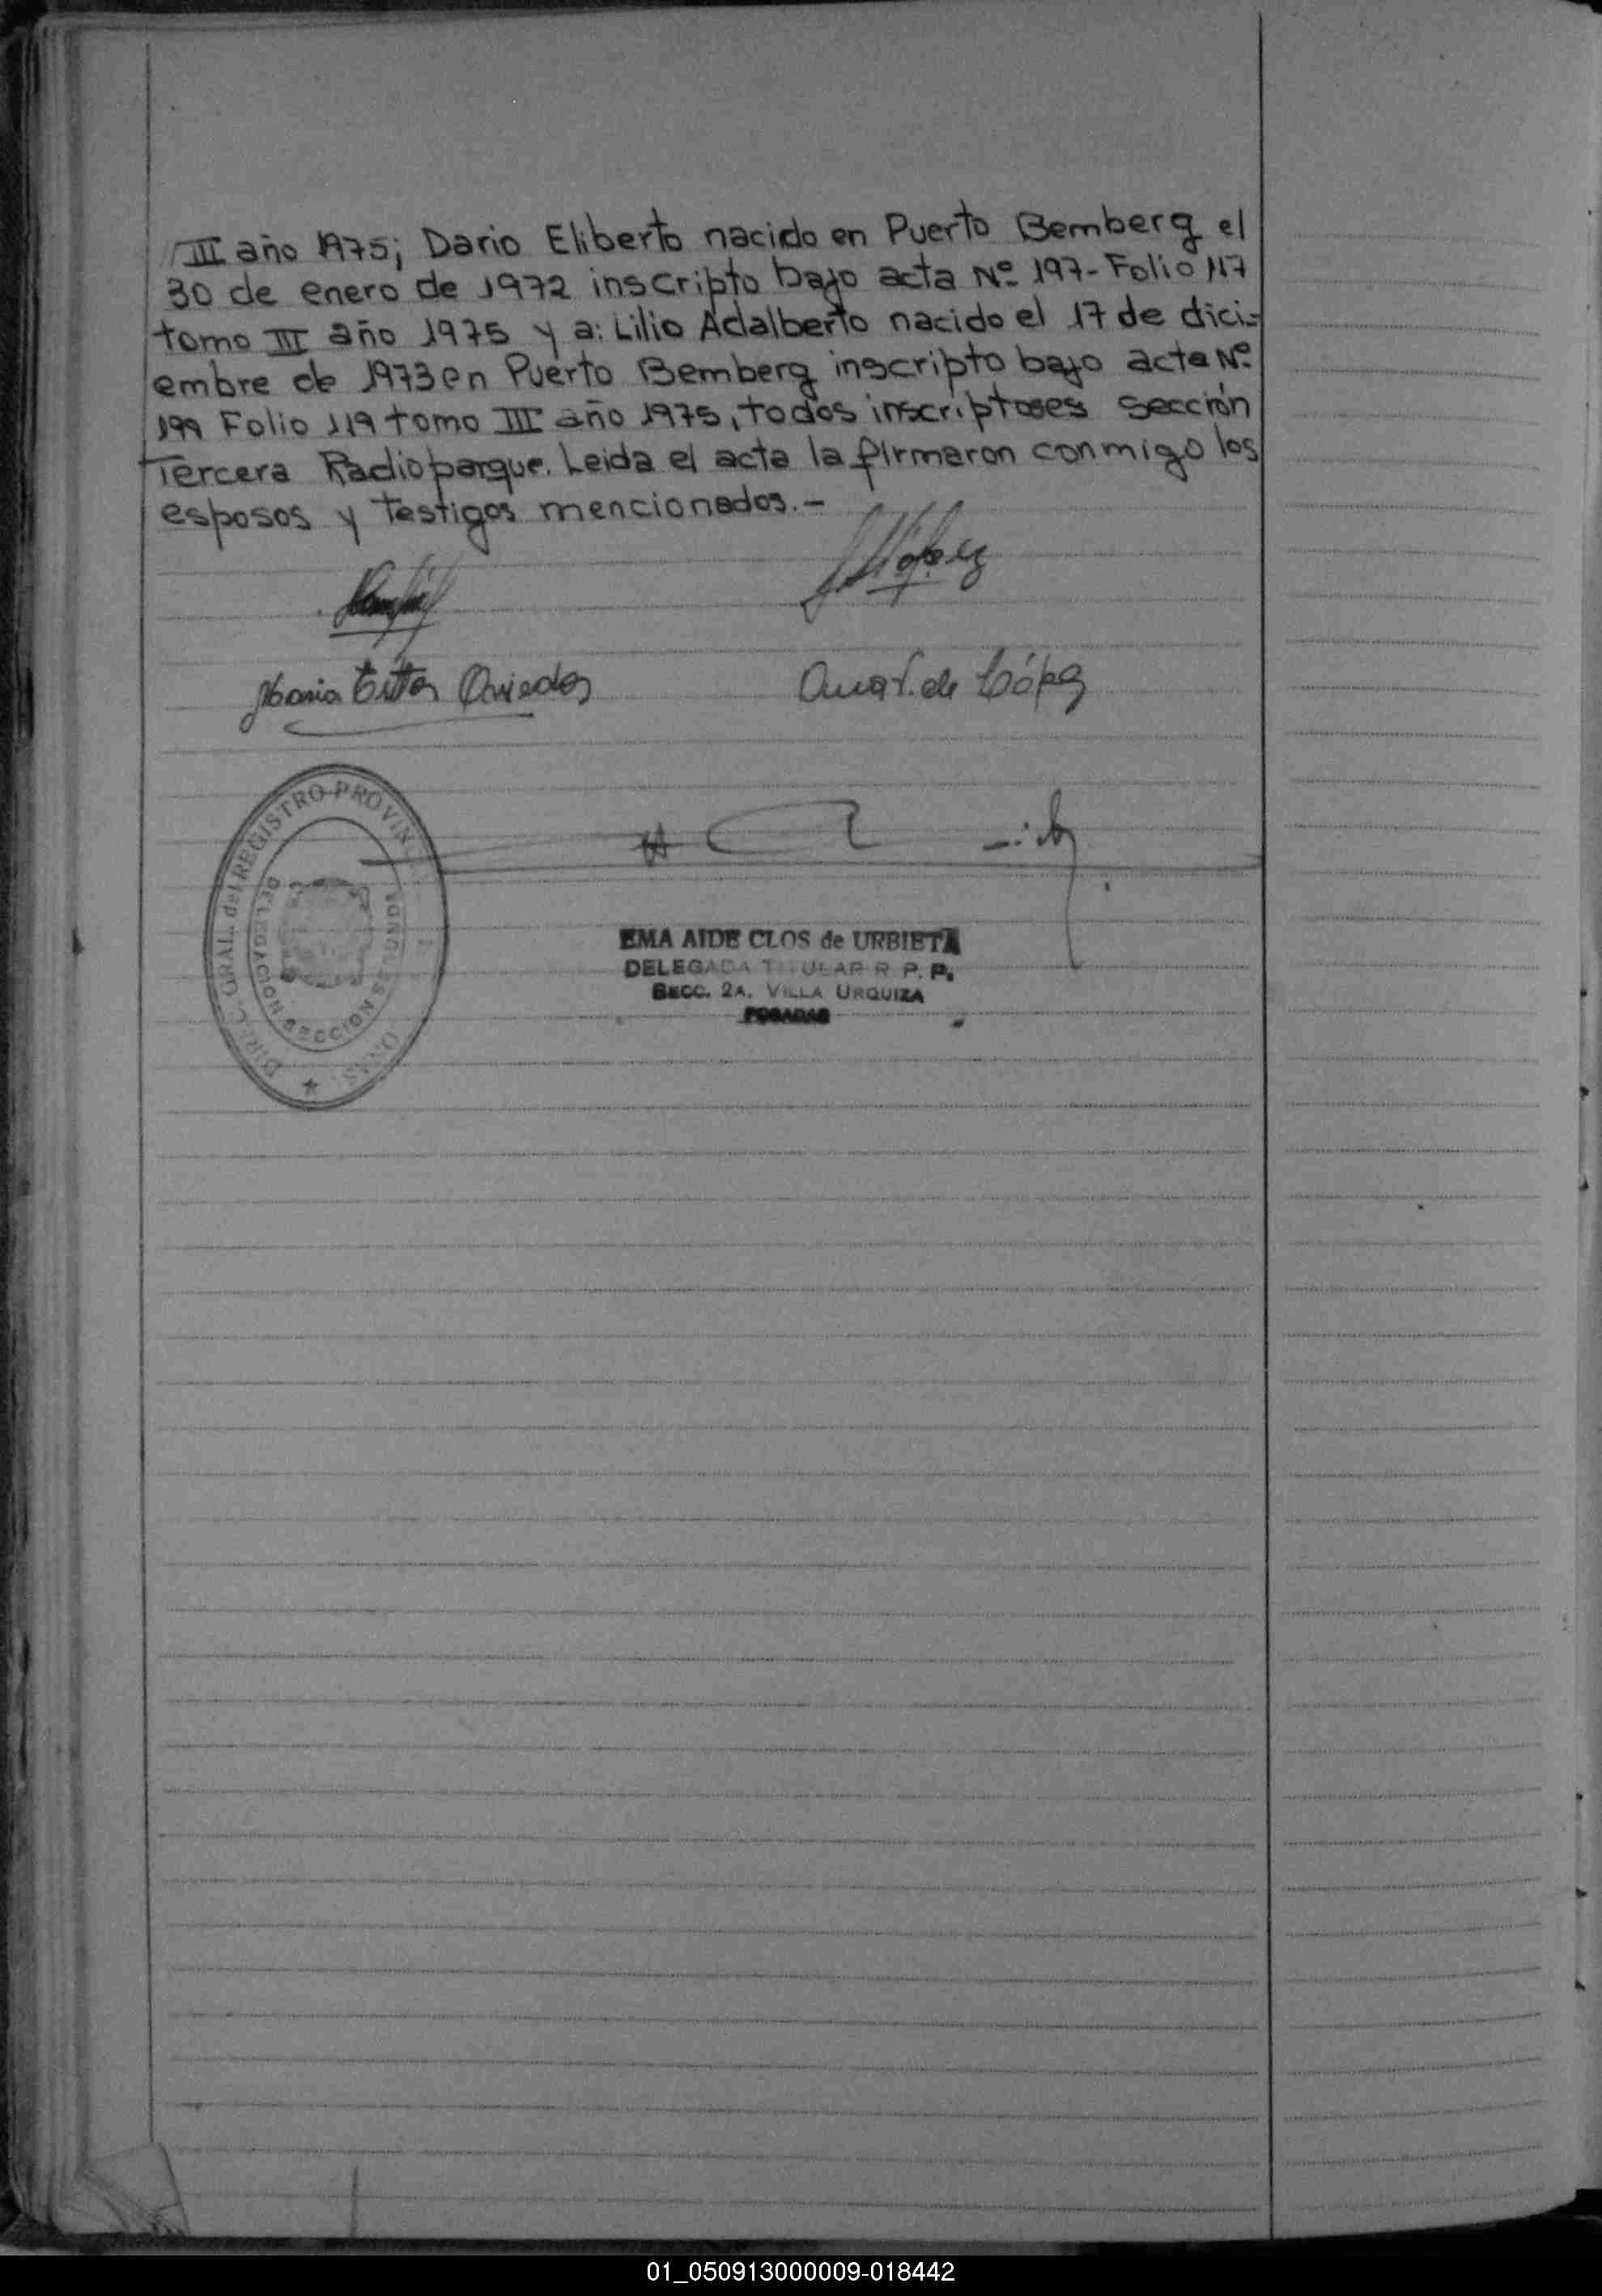 III año 1975; Dario Eliberto nacido en Puerto Bemberg el
30 de enero de 1972 inscripto bajo acta Nº 197- Folio 117
tomo III año 1975 y a: Lilio Adalberto nacido el 17 de dici-
embre de 1973 en Puerto Bemberg inscripto bajo acta Nº
199 Folio 119 tomo III año 1975, todos inscriptoses sección
Tercera Radioparque. Leida el acta la firmaron conmigo los
esposos y testigos mencionados.-
López
Maria Oviedo
de López
DIREC. GRAL. del REGISTRO PROVIN
DELEGACION SECCION SEGUNDA
EMA AIDE CLOS de URBIETA
DELEGADA TITULAR R. P. P.
SECC. 2A. VILLA URQUIZA
POSADAS
01_050913000009-018442